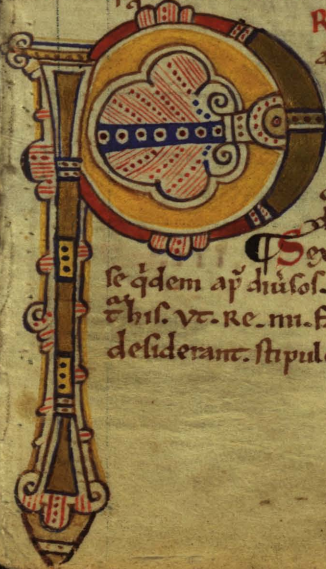 P
¶ Sex
se q̇dem ap̃ diũsos.
t̃ his. vt. Re. mi. F
desiderant. stipul